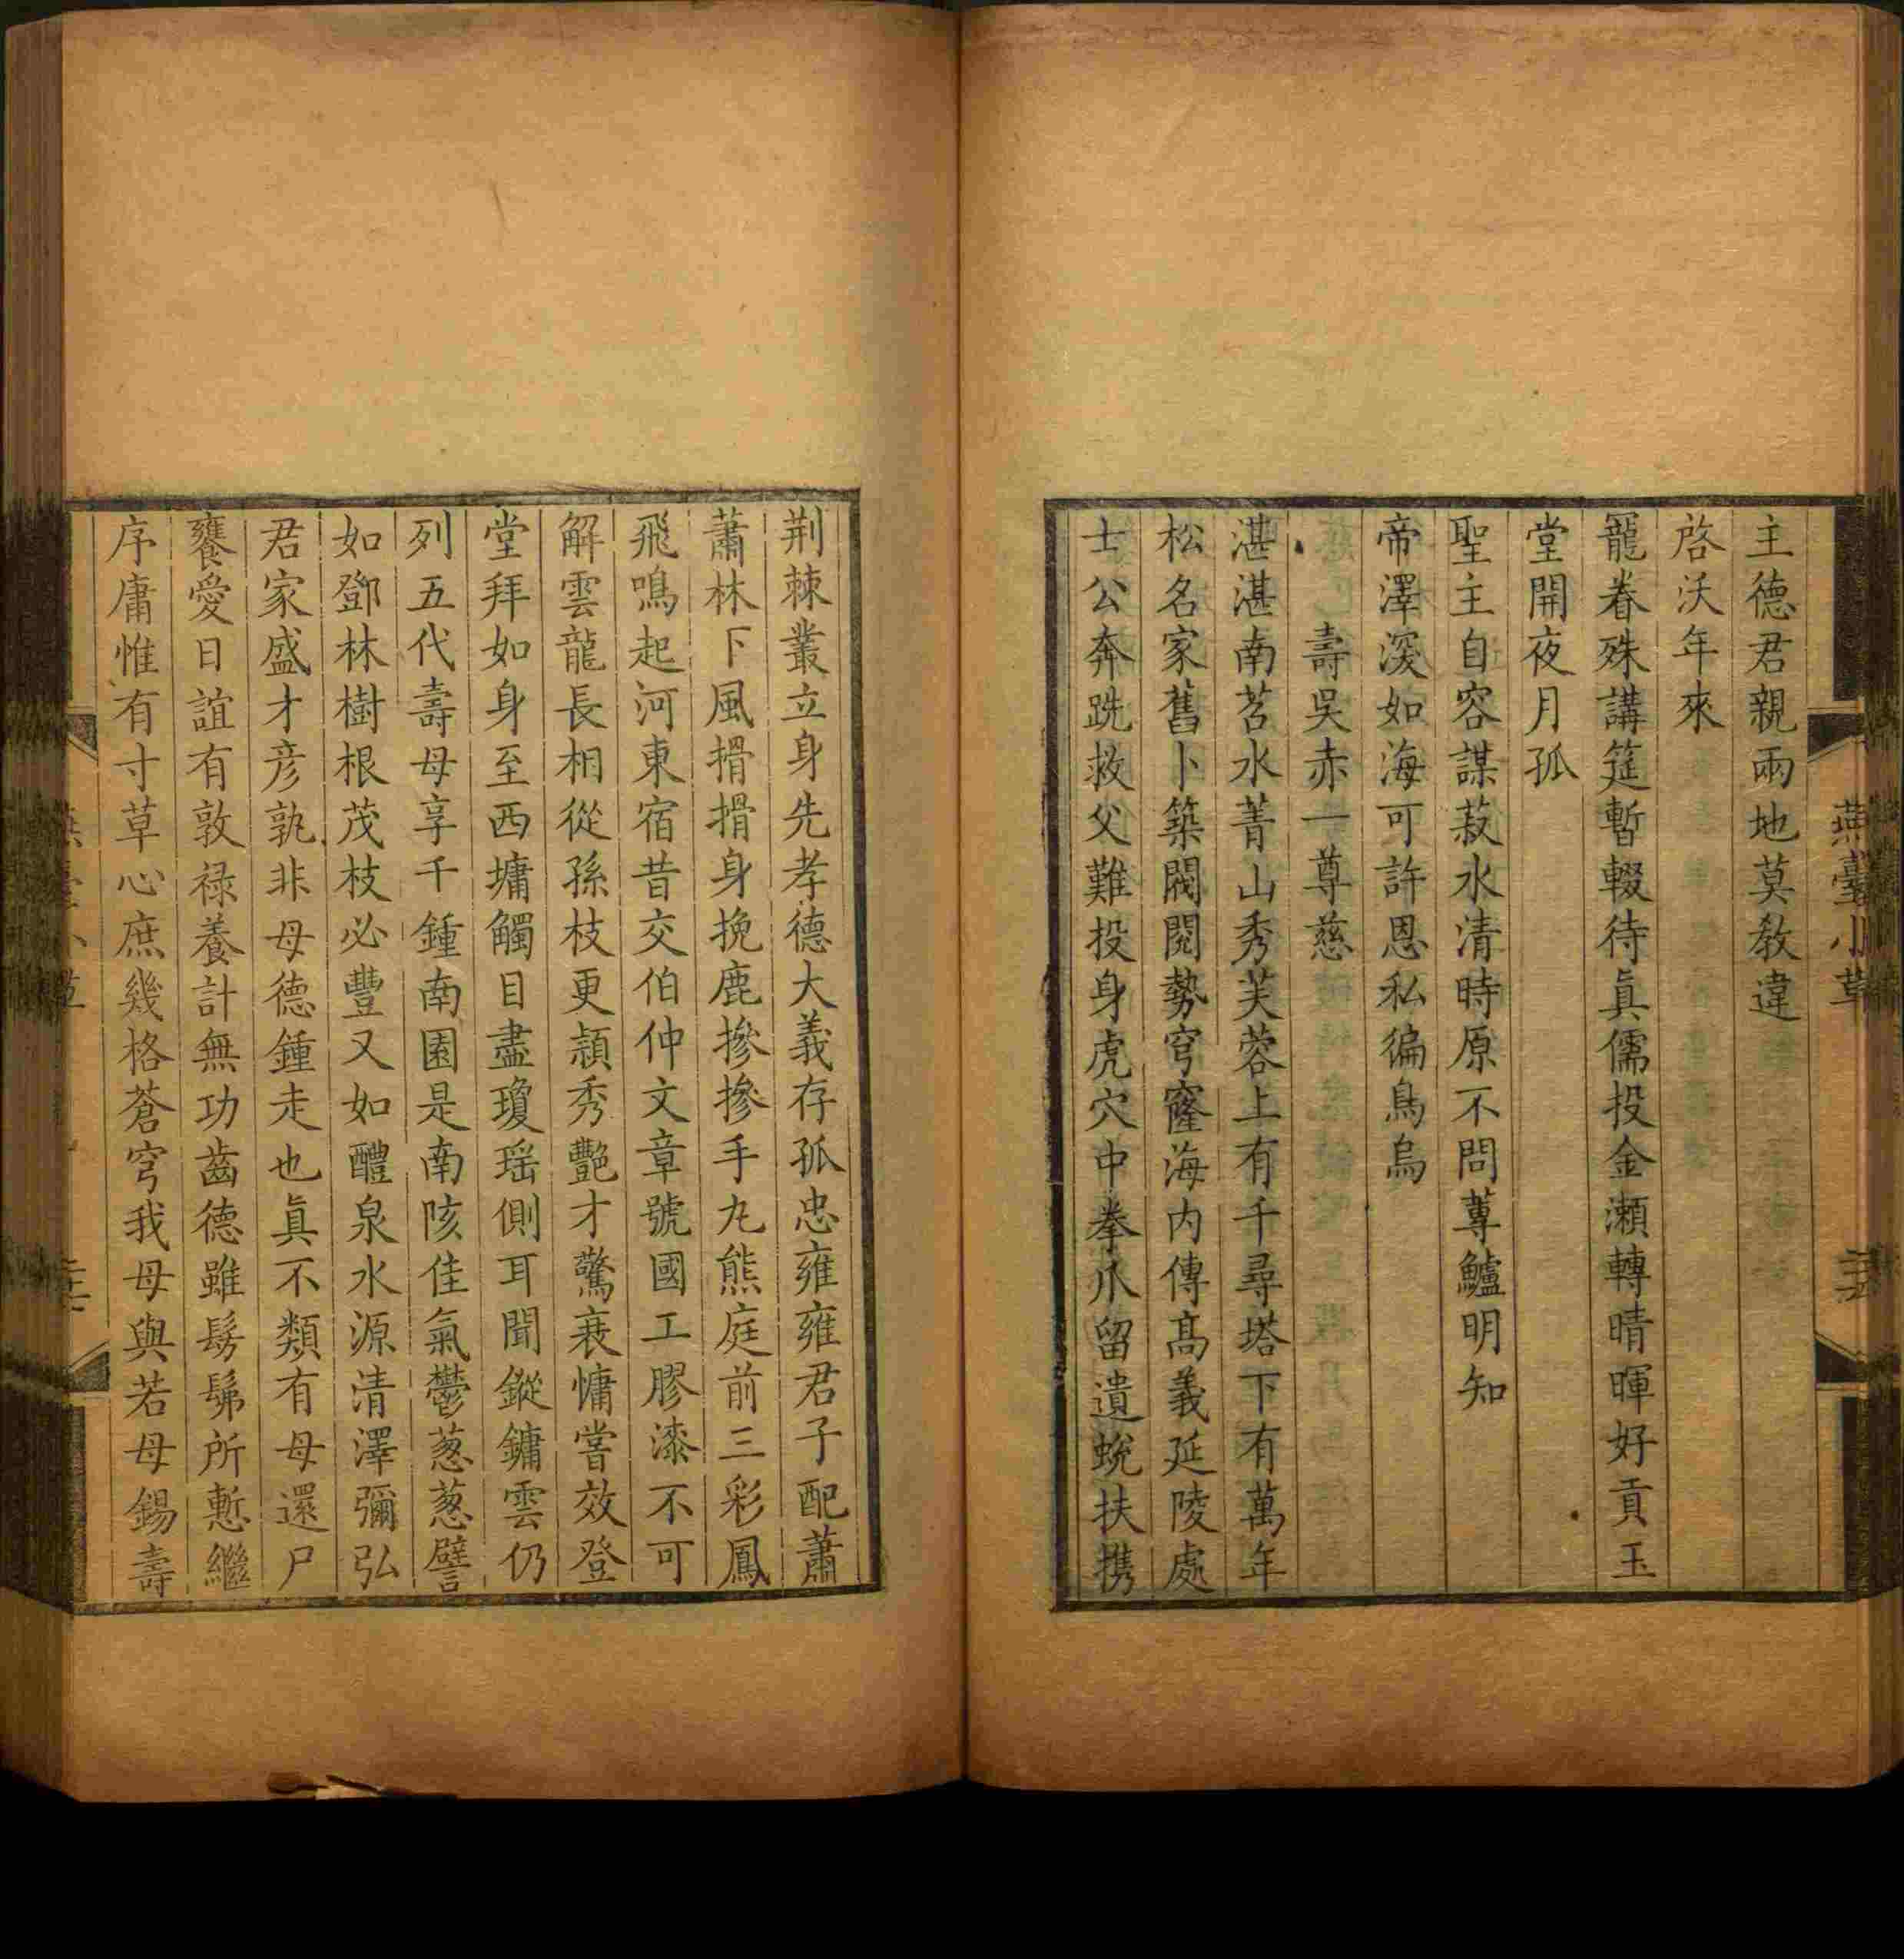 燕臺小草
主德君親兩地莫教違
啓沃年來
寵眷殊講筵暫輟待眞儒投金瀨轉晴暉好貢玉
堂開夜月孤
聖主自容謀菽水清時原不問蓴鱸明知
帝澤深如海可許恩私徧鳥烏
壽吳赤一尊慈
湛湛南苕水菁山秀芙蓉上有千尋塔下有萬年
松名家舊卜築閥閱勢穹窿海内傳髙義延陵處
士公奔跣救父難投身虎穴中拳爪留遺蛻扶攜
荆棘叢立身先孝德大義存孤忠雍雍君子配蕭
蕭林下風搰搰身挽鹿摻摻手丸熊庭前三彩鳳
飛鳴起河東宿昔交伯仲文章號國工膠漆不可
解雲龍長相從孫枝更穎秀艷才驚衰慵嘗效登
堂拜如身至西墉觸目盡瓊瑶側耳聞鏦鏞雲仍
列五代壽母享千鍾南園是南陔佳氣鬱葱葱譬
如鄧林樹根茂枝必豐又如醴泉水源清澤彌弘
君家盛才彦孰非母德鍾走也眞不類有母還尸
饔愛日誼有敦禄養計無功齒德雖髣髴所慙繼
序庸惟有寸草心庶幾格蒼穹我母與若母錫壽